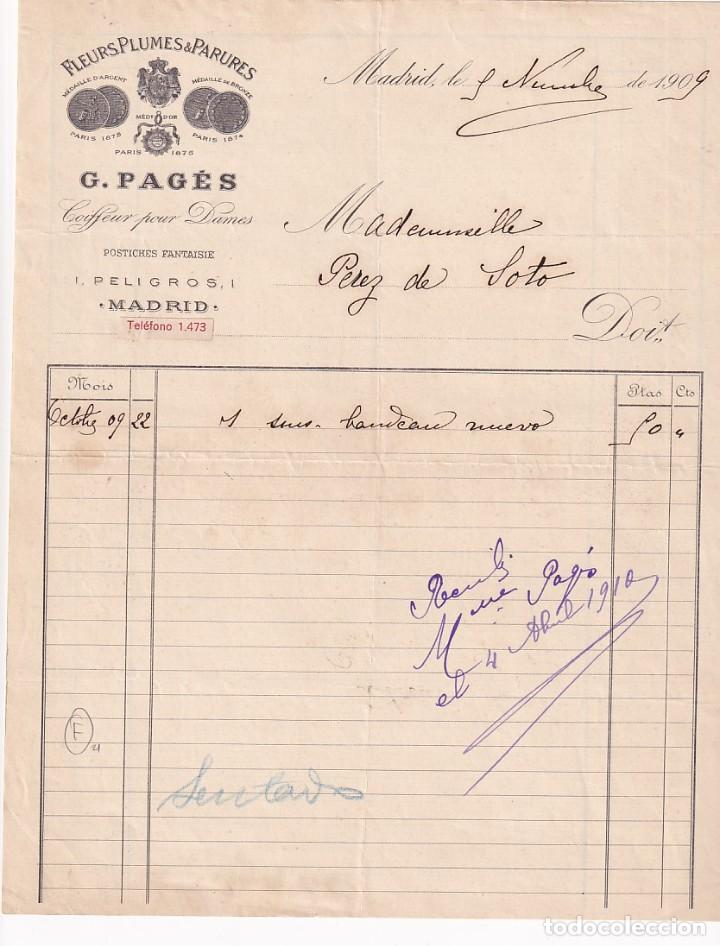 FLEURS, PLUMES & PARURES
MÉDAILLE D'ARGENT
MÉDAILLE DE BRONZE
MÉDE D'OR
PARIS 1878
PARIS 1874
PARIS 1875
G. PAGÉS
Coiffeur pour Dames
POSTICHES FANTAISIE
1, PELIGROS, 1
MADRID
Teléfono 1.473
Madrid, le 5 de 1909
Mademuselle
Perez de Soto
Doit
Mois Ptas Cts
Octbre 09 22 1 bandeau nuevo 50 "
Recibi
Mme Pagés
el 4 Abril 1910
F
Sentado
todocoleccion